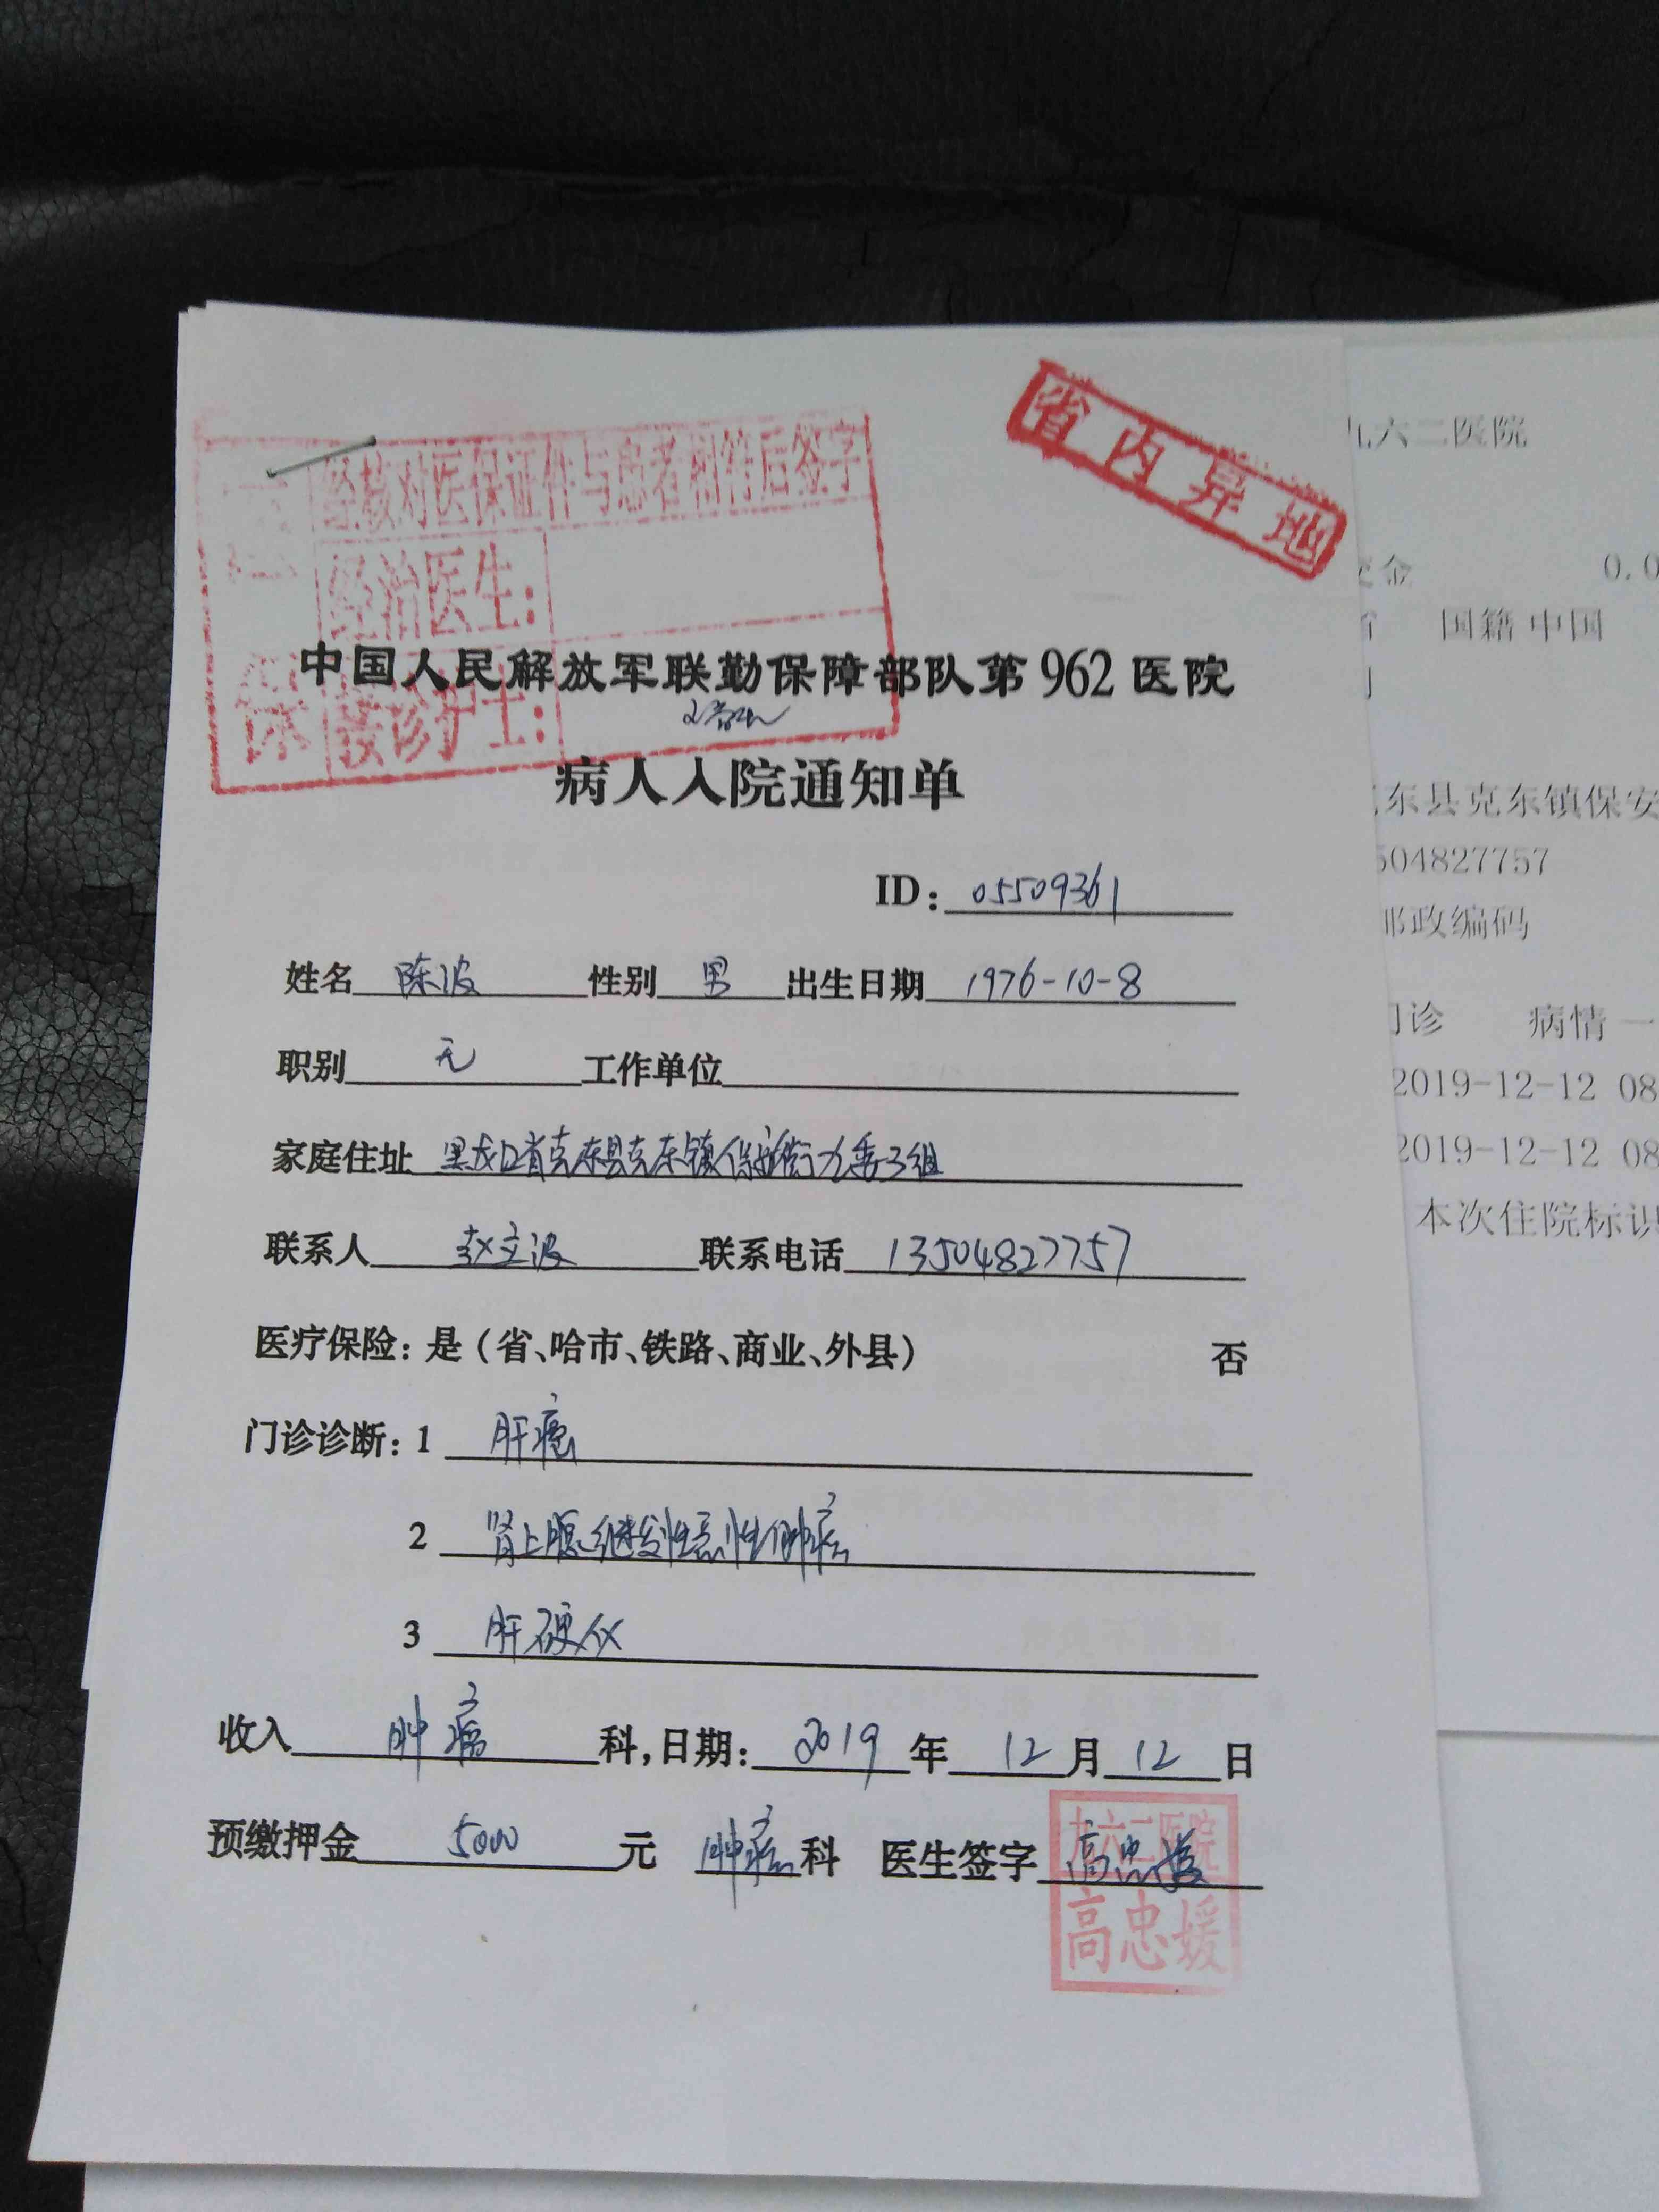 省内异地
经核对医保证件与患者相符后签字
医保
经治医生：
接诊护士：
中国人民解放军联勤保障部队第962医院
病人入院通知单
ID：05509361
姓名 陈波 性别 男 出生日期 1976-10-8
职别 无 工作单位
家庭住址 黑龙江省克东县克东镇保安街九委3组
联系人 赵立波 联系电话 13504827757
医疗保险：是（省、哈市、铁路、商业、外县） 否
门诊诊断：1 肝癌
2 肾上腺继发性恶性肿瘤
3 肝硬化
收入 肿瘤 科，日期：2019 年 12 月 12 日
预缴押金 5000 元 肿瘤科 医生签字 高忠媛
九六二医院
高忠媛
九六二医院
交金 0.0
国籍 中国
东县克东镇保安
504827757
邮政编码
门诊 病情 一
2019-12-12 08
2019-12-12 08
本次住院标识